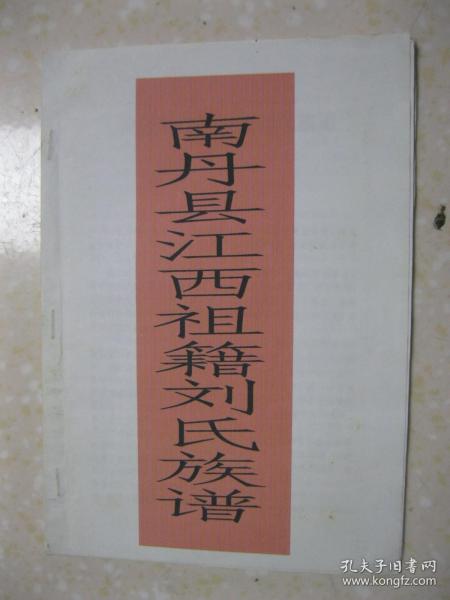 南丹县江西祖籍刘氏族谱
孔夫子旧书网
www.kongfz.com